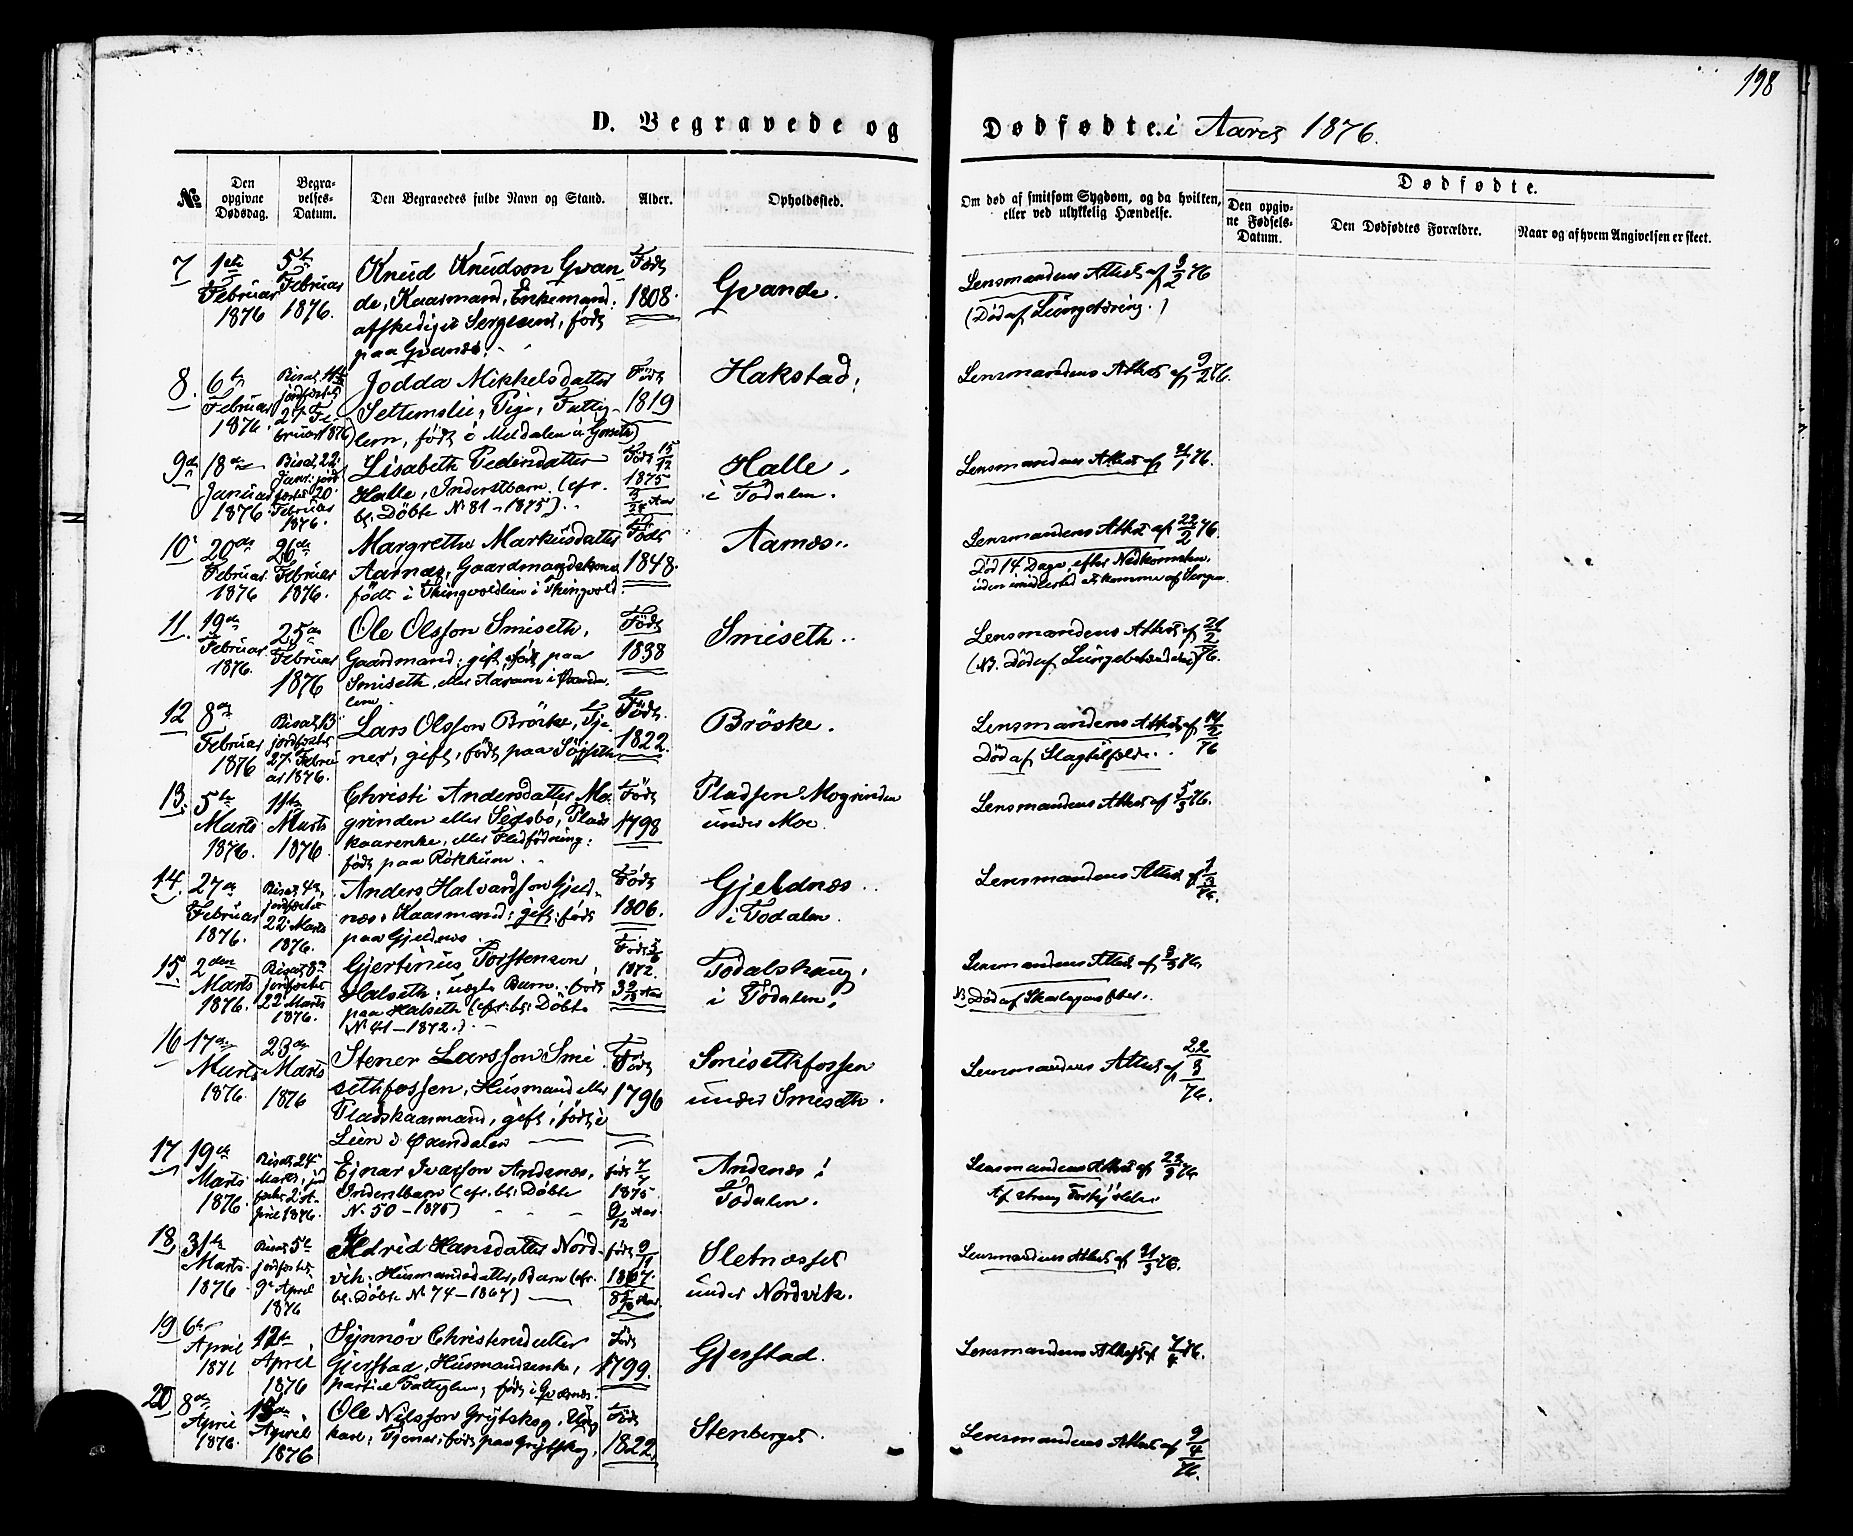 198
D. Begravede og Dødfødte. i Aaret 1876.
No
Den opgivne Dødsdag.
Begravelses-Datum.
Den Begravedes fulde Navn og Stand.
Alder.
Opholdssted.
Om død af smitsom Sygdom, og da hvilken, eller ved ulykkelig Hændelse.
Dødfødte.
Den opgivne Fødsels-Datum.
Den Dødfødtes Forældre.
Naar og af hvem Angivelsen er skeet.
7
1ste Februar 1876
5te Februar 1876.
Knud Knudson Gvan-
de, Kaarmand, Enkemand,
afskediget Sergeant, født
paa Gvanæs.
Født 1808.
Gvande.
Lensmandens Attest af 9/2 76
(Død af Lungetæring.)
8.
6te Februar 1876.
Bisat 11te jordfæstet 27 Februar 1876
Jodda Mikkelsdatter
Settemslie, Pige, Fattig-
lem, født i Meldalen
Født 1819
Hakstad,
Lensmandens Attest af 9/2 76.
9de
18de Januar 1876.
Bisat 22 Januar: jordfæstet 20 Februar 1876.
Lisabeth Pedersdatter
Halle, Inderstbarn. (cfr.
bl: Døbte No 81 – 1875).
Født 15/12 1875
Halle,
i Todalen.
Lensmandens Attest af 21/1 76.
10
20de Februar 1876
26de Februar 1876.
Margrethe Markusdatter
Aarnæs, Gaardmandskone,
født i Thingvoldlien i Thingvold.
Født 1848.
Aarnæs.
Lensmandens Attest af 22/2 76.
Død 14 Dage efter Nedkomsten,
11.
19de Februar 1876.
25de Februar 1876
Ole Olsson Smiseth,
Gaardmand; gift, født paa
Smiseth, eller
Født 1838
Smiseth.
Lensmandens Attest af 21/2 76.
(NB. Død af Lungebetændelse)
12
8de Februar 1876
Bisat 13 jordfæstet 27 Februar 1876.
Lars Olsson Brøske, Tje-
ner, gift, født paa
Født 1822.
Brøske.
Lensmandens Attest af 14/2 76
Død af Slagtilfælde.
13.
5te Marts 1876.
11te Marts 1876.
Christi Andersdatter Mo-
grinden eller Sedsbø, Plads-
kaarenke, eller Flødføring:
født paa Røkkum.
Født 1798
Pladsen Mogrinden
under Moe.
Lensmandens Attest af 5/3 76.
14.
27de Februar 1876.
Bisat 4de, jordfæstet 22 Marts 1876.
Anders Halvardson Gjeld-
næs, Kaarmand; gift; født
paa Gjeldnæs
Født 1806.
Gjeldnæs
i Todalen.
Lensmandens Attest af 1/3 76.
15.
2den Marts 1876.
Bisat 8de jordfæstet 22 Marts 1876.
Gjertinius Torstensen
Halseth: uægte Barn. født
paa Halseth (cfr. bl: Døbte
No 41 – 1872.)
Født 1872.
Todalshaug,
i Todalen.
Lensmandens Attest af 8/3 76.
NB Død af Skarlagensfeber.
16
17de Marts 1876.
23de Marts 1876
Stener Larsson Smi
sethfossen, Husmand eller
Pladskaarmand, gift, født i
Lien i Øxendalen
Født 1796
Smisethfossen
under Smiseth.
Lensmandens Attest af 22/3 76.
17
19de Marts 1876.
Bisat 24 Marts, jordfæstet 2 April 1876.
Ejnar Ivarson Andenæs,
Inderstbarn (cfr. bl: Døbte
No 50 – 1875)
født 7/7 1875
9/12 Aar
Andenæs i
Todalen.
Lensmandens Attest af 23/3 76
Af streng Forkjølelse
18
31te Marts 1876.
Bisat 5te jordfæstet 9de April 1876
Aldrid Hansdatter Nord-
vik: Husmandsdatter, Barn (cfr.
bl: Døbte No 74 – 1867)
født 9/11 1867.
Sletnæsset
under Nordvik.
Lensmandens Attest af 31/3 76.
19
6te April 1876
12te April 1876
Synnøv Christensdatter
Gjerstad, Husmandsenke,
partiel Fattiglem, født i Gvernæs.
Født 1799.
Gjerstad.
Lensmandens Attest af 7/4 76.
20
8de April 1876.
15de April 1876
Ole Nilsson Grytskog, Ung
karl, Tjener; født paa Grytskog,
Født 1822,
Stenberget.
Lensmandens Attest af 9/4 76.